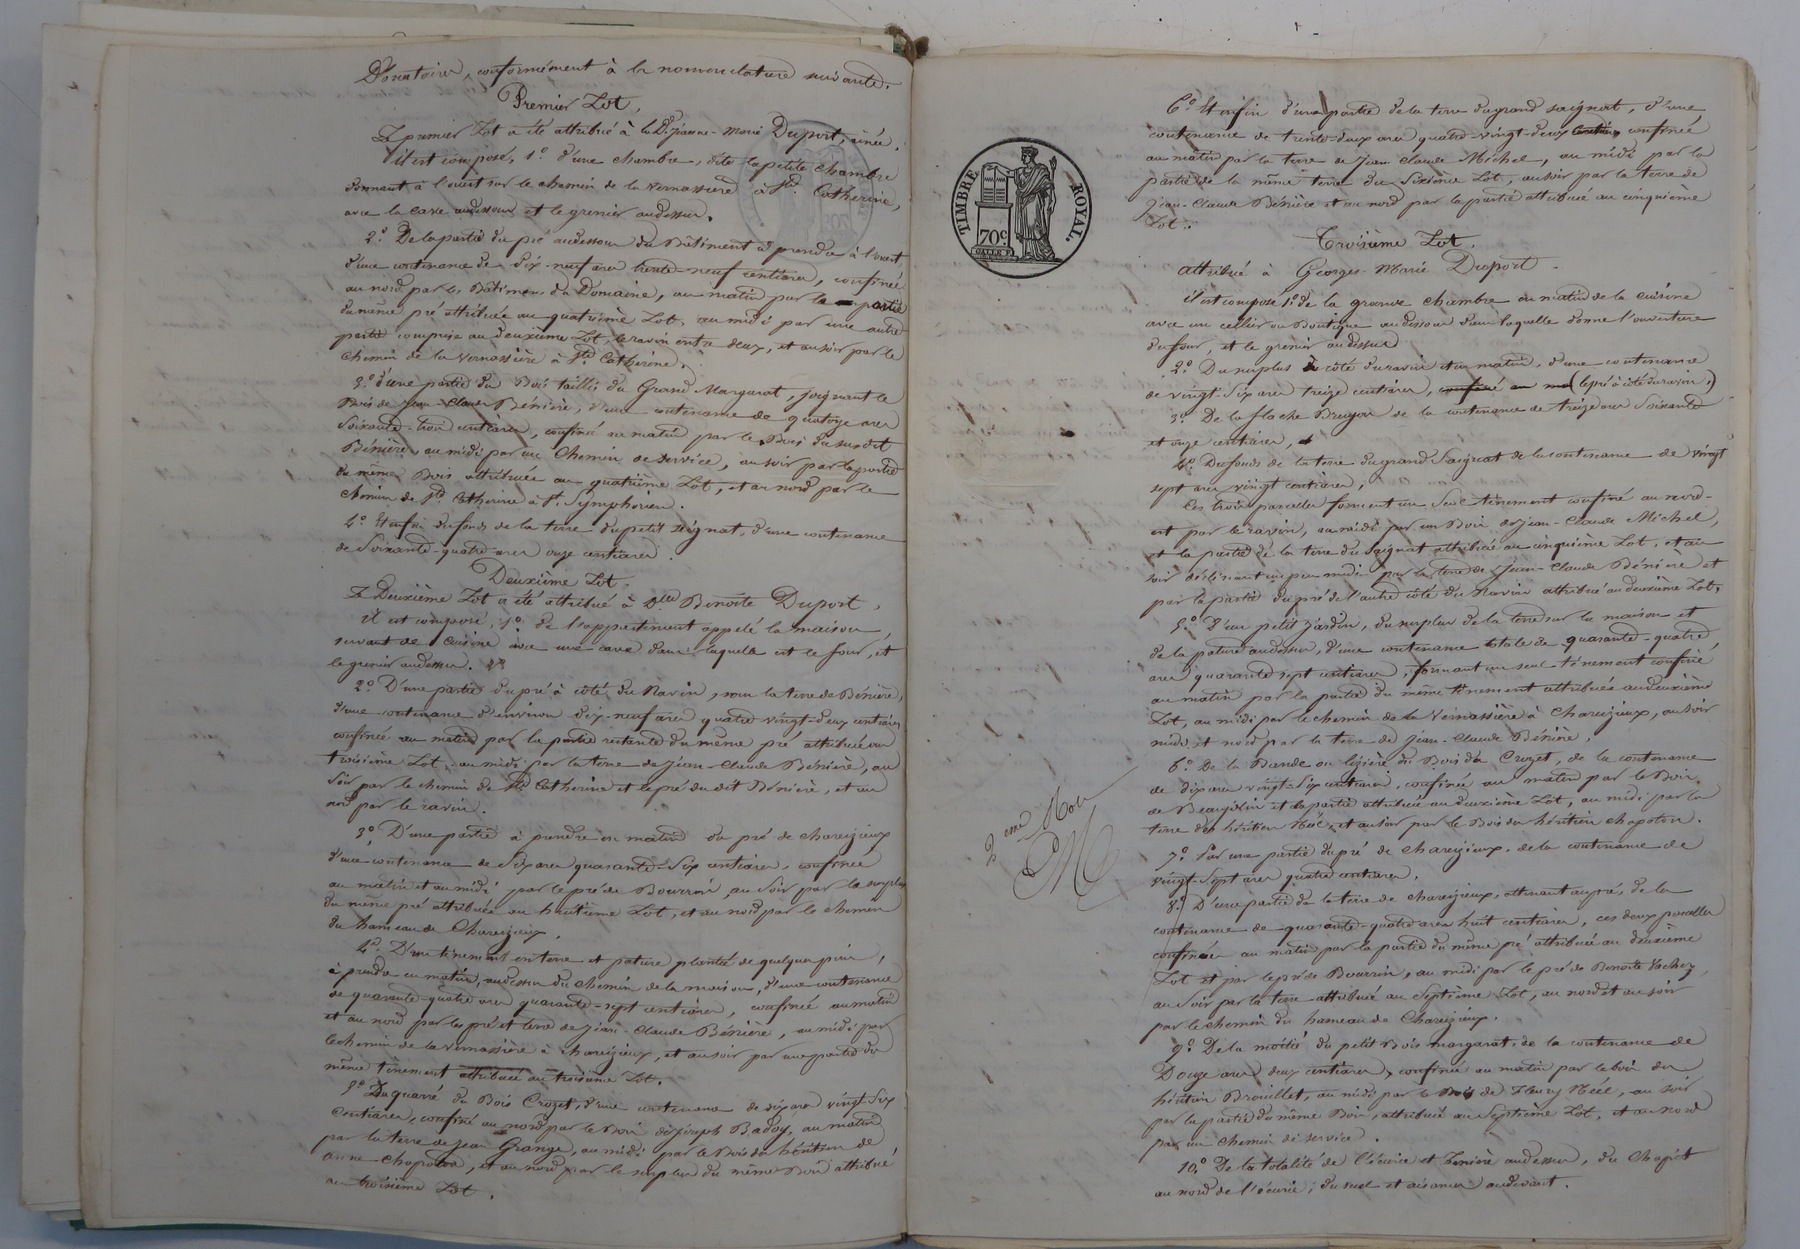 Donatoires, conformément à la nomenclature suivante.
Premier Lot.
Le premier Lot a été attribué à la De. Jeanne-Marie Duport, ainée.
il est composé, 1.° d'une chambre, dite la petite chambre
donnant à l'ouest sur le chemin de la Vernassière à Ste Catherine,
avec la cave audessous et le grenier audessus.
2.° De la partie du pré audessous du Bâtiment à prendre à l'ouest
d'une contenance de dix-neuf ares trente-neuf centiares, confinée
au nord par les Bâtimens du Domaine, au matin par la partie
du même pré attribuée au quatrième Lot, au midi par une autre
partie comprise au deuxième Lot, le ravin entre deux, et au soir par le
chemin de la Vernassière à Ste Catherine.
3.° d'une partie du Bois taillis du Grand Margarat, joignant le
Bois de Jean-Claude Bénière, d'une contenance de quatorze ares
soixante-trois centiares, confiné au matin par le Bois du susdit
Bénière, au midi par un Chemin de service, au soir par la partie
du même Bois attribuée au quatrième Lot, et au nord par le
chemin de Ste Catherine à St. Symphorien.
4.° Et enfin du fonds de la terre du petit Seignat, d'une contenance
de soixante-quatre ares onze centiares.
Deuxième Lot.
Le Deuxième Lot a été attribué à Dlle Benoite Duport,
il est composé, 1.° de l'appartement appelé la maison,
servant de cuisine avec une cave dans laquelle est le four, et
le grenier audessus.
2.° D'une partie du pré à côté du Ravin, sous la terre de Bénière,
d'une contenance d'environ dix-neuf ares quatre vingt-deux centiares
confinée au matin par la partie restante du même pré attribuée au
troisième Lot, au midi par la terre de Jean-Claude Bénière, au
soir par le chemin de Ste Catherine et le pré du dit Bénière, et au
nord par le ravin.
3.° D'une partie à prendre en matin du pré de Chareizieux
d'une contenance de six ares quarante-six centiares, confinée
au matin et au midi par le pré de Bourrin, au soir par le surplus
du même pré attribuée au huitième Lot, et au nord par le chemin
du hameau de Chareizieux.
4.° D'un tènement en terre et pature plantée de quelques pins,
à prendre en matin, audessus du chemin de la maison, d'une contenance
de quarante-quatre ares quarante-sept centiares, confinée au matin
et au nord par les pré et terre de Jean-Claude Bénière, au midi par
le chemin de la Vernassière à Chareizieux, et au soir par une partie du
même tènement attribuée au troisième Lot.
5.° Du quarré du Bois Crozet, d'une contenance de dix ares vingt-six
Centiares, confiné au nord par le Bois de Joseph Badoy, au matin
par la terre de Jean Grange, au midi par le Bois des héritiers de
anne Chapoton, et au nord par le surplus du même Bois attribué
au troisième Lot.
6.° Et enfin d'une partie de la terre du grand Saignat, d'une
contenance de trente-deux ares quatre-vingt-deux centiares confinée
au matin par la terre de Jean Claude Michel, au midi par la
partie de la même terre du Sixième Lot, au soir par la terre de
Jean-Claude Bénière et au nord par la partie attribuée au cinquième
Lot.
TIMBRE ROYAL.
70c.
Troisième Lot.
attribué à Georges-Marie Duport.
il est composé 1.° de la grande chambre au matin de la cuisine
avec un cellier ou Boutique audessous dans laquelle donne l'ouverture
du four, et le grenier audessus
2.° Du surplus à côté du ravin et au matin, d'une contenance
de vingt-six ares treize centiares, confiné au ma (le pré à côté du ravin.)
3.° De la flache Brugou de la contenance de treize ares soixante
et onze centiares,
4.° Du fonds de la terre du grand Saignat de la contenance de vingt
sept ares vingt centiares,
Ces trois parcelles forment un seul tènement confiné au nord-
est par le ravin, au midi par un Bois de Jean-Claude Michel,
et la partie de la terre du Saignat attribuée au cinquième Lot, et au
soir déclinant un peu midi par la terre de Jean-Claude Bénière et
par la partie du pré de l'autre côté du Ravin attribué au deuxième Lot,
5.° D'un petit jardin, du surplus de la terre sur la maison et
de la pature audessus, d'une contenance totale de quarante-quatre
ares quarante sept centiares, formant un seul tènement confiné
au matin par la partie du même tènement attribuée au deuxième
Lot, au midi par le chemin de la Vernassière à Chareizieux, au soir
midi et nord par la terre de Jean-Claude Bénière,
6.° De la Bande ou lizière du Bois du Crozet, de la contenance
de dix ares vingt-six centiares, confinée au matin par le Bois
de et la partie attribuée au deuxième Lot, au midi par la
terre des héritiers Néel, et au soir par le Bois des héritiers Chapoton.
2eme Rôle
7.° Par une partie du pré de Chareizieux, de la contenance de
vingt-sept ares quatre centiares.
8.° D'une partie de la terre de Chareizieux, attenant au pré, de la
contenance de quarante-quatre ares huit centiares, ces deux parcelles
confinées au matin par la partie du même pré attribuée au deuxième
Lot et par le pré de Bourrin, au midi par le pré de Benoite Vachez,
au soir par la terre attribuée au Septième Lot, au nord et au soir
par le chemin du hameau de Chareizieux.
9.° De la moitié du petit Bois margarat, de la contenance de
Douze ares deux centiares, confiné au matin par le bois des
héritiers Brouillet, au midi par le Bois de Fleury Néel, au soir
par la partie du même Bois, attribuée au Septième Lot, et au nord
par un chemin de service.
10.° De la totalité de l'écurie et fenière audessus, du Chapit
au nord de l'écurie, du suel et aisances audevant.